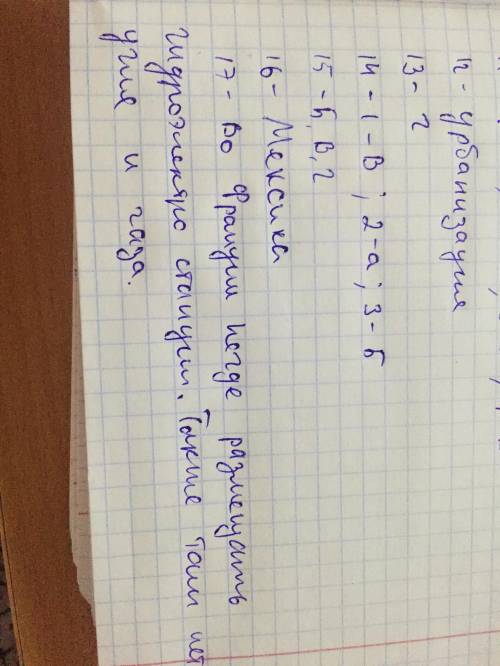 12 - Урбанизация
13 - г
14 - 1 - В ; 2 - а ; 3 - Б
15 - Б, В, г
16 - Мексика
17 - Во Франции негде размещать
гидроэлектро станции. Также там нет
угля и газа.